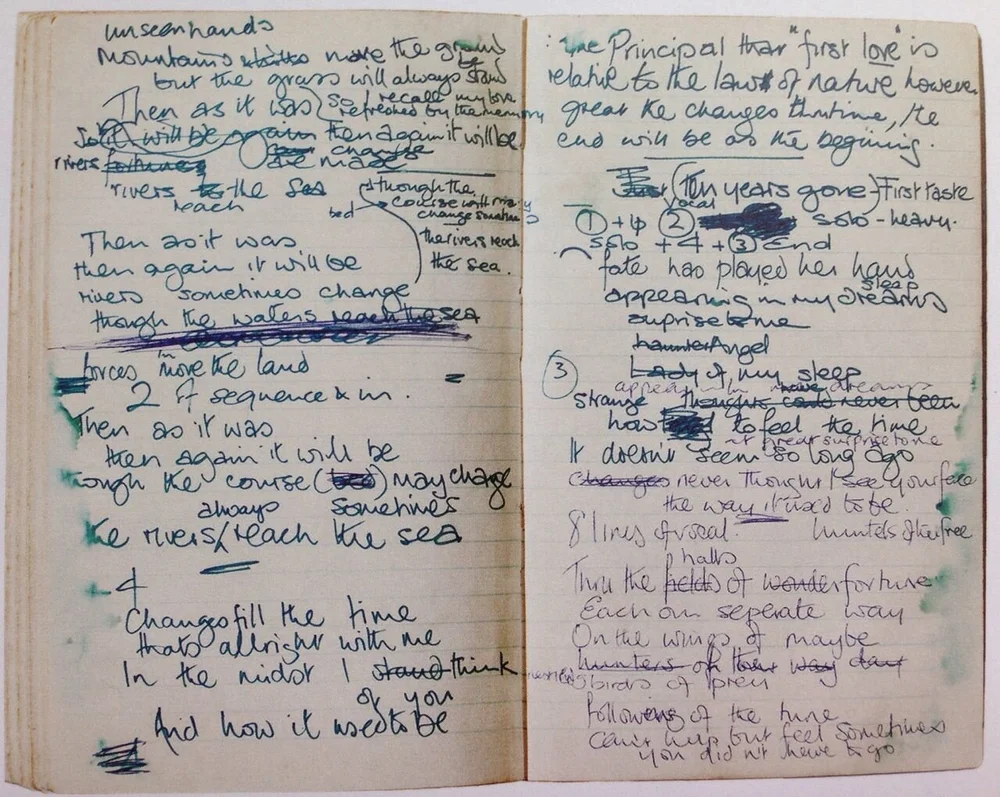 unseen hands
Mountains move the ground
but the grass will always stand
Then as it was
so I recall my love
refreshed by the memory
So it will be again then again it will be
change
rivers fortunes are made
rivers to the sea
reach
though the
bed course will may
change sometimes
the rivers reach
the sea.
Then as it was
then again it will be
rivers sometimes change
though the waters reach the sea
forces move the land
2 of sequence & in.
Then as it was
then again it will be
though the course may change
always sometimes
the rivers reach the sea
4
Changes fill the time
thats allright with me
In the midst I stand think
of you
And how it used to be
: The Principal that "first love" is
relative to the laws of nature however
great the changes thru time, the
end will be as the begining.
(Ten years gone) First taste
vocal
① + ② solo - heavy.
solo + 4 + ③ End
fate has played her hand
sleep
appearing in my dreams
suprise to me
haunter Angel
Lady of my sleep
③ appear in dreams
strange thoughts could never been
how to feel the time
great surprise to me
It doesn't seem so long ago
changes never thought I see your face
the way it used to be.
8 lines of vocal. hunters of the free
halls
Thru the fields of wonder fortune
Each our seperate way
On the wings of maybe
hunters of their way
birds of prey
following of the tune
can't help but feel sometimes
you did n't have to go